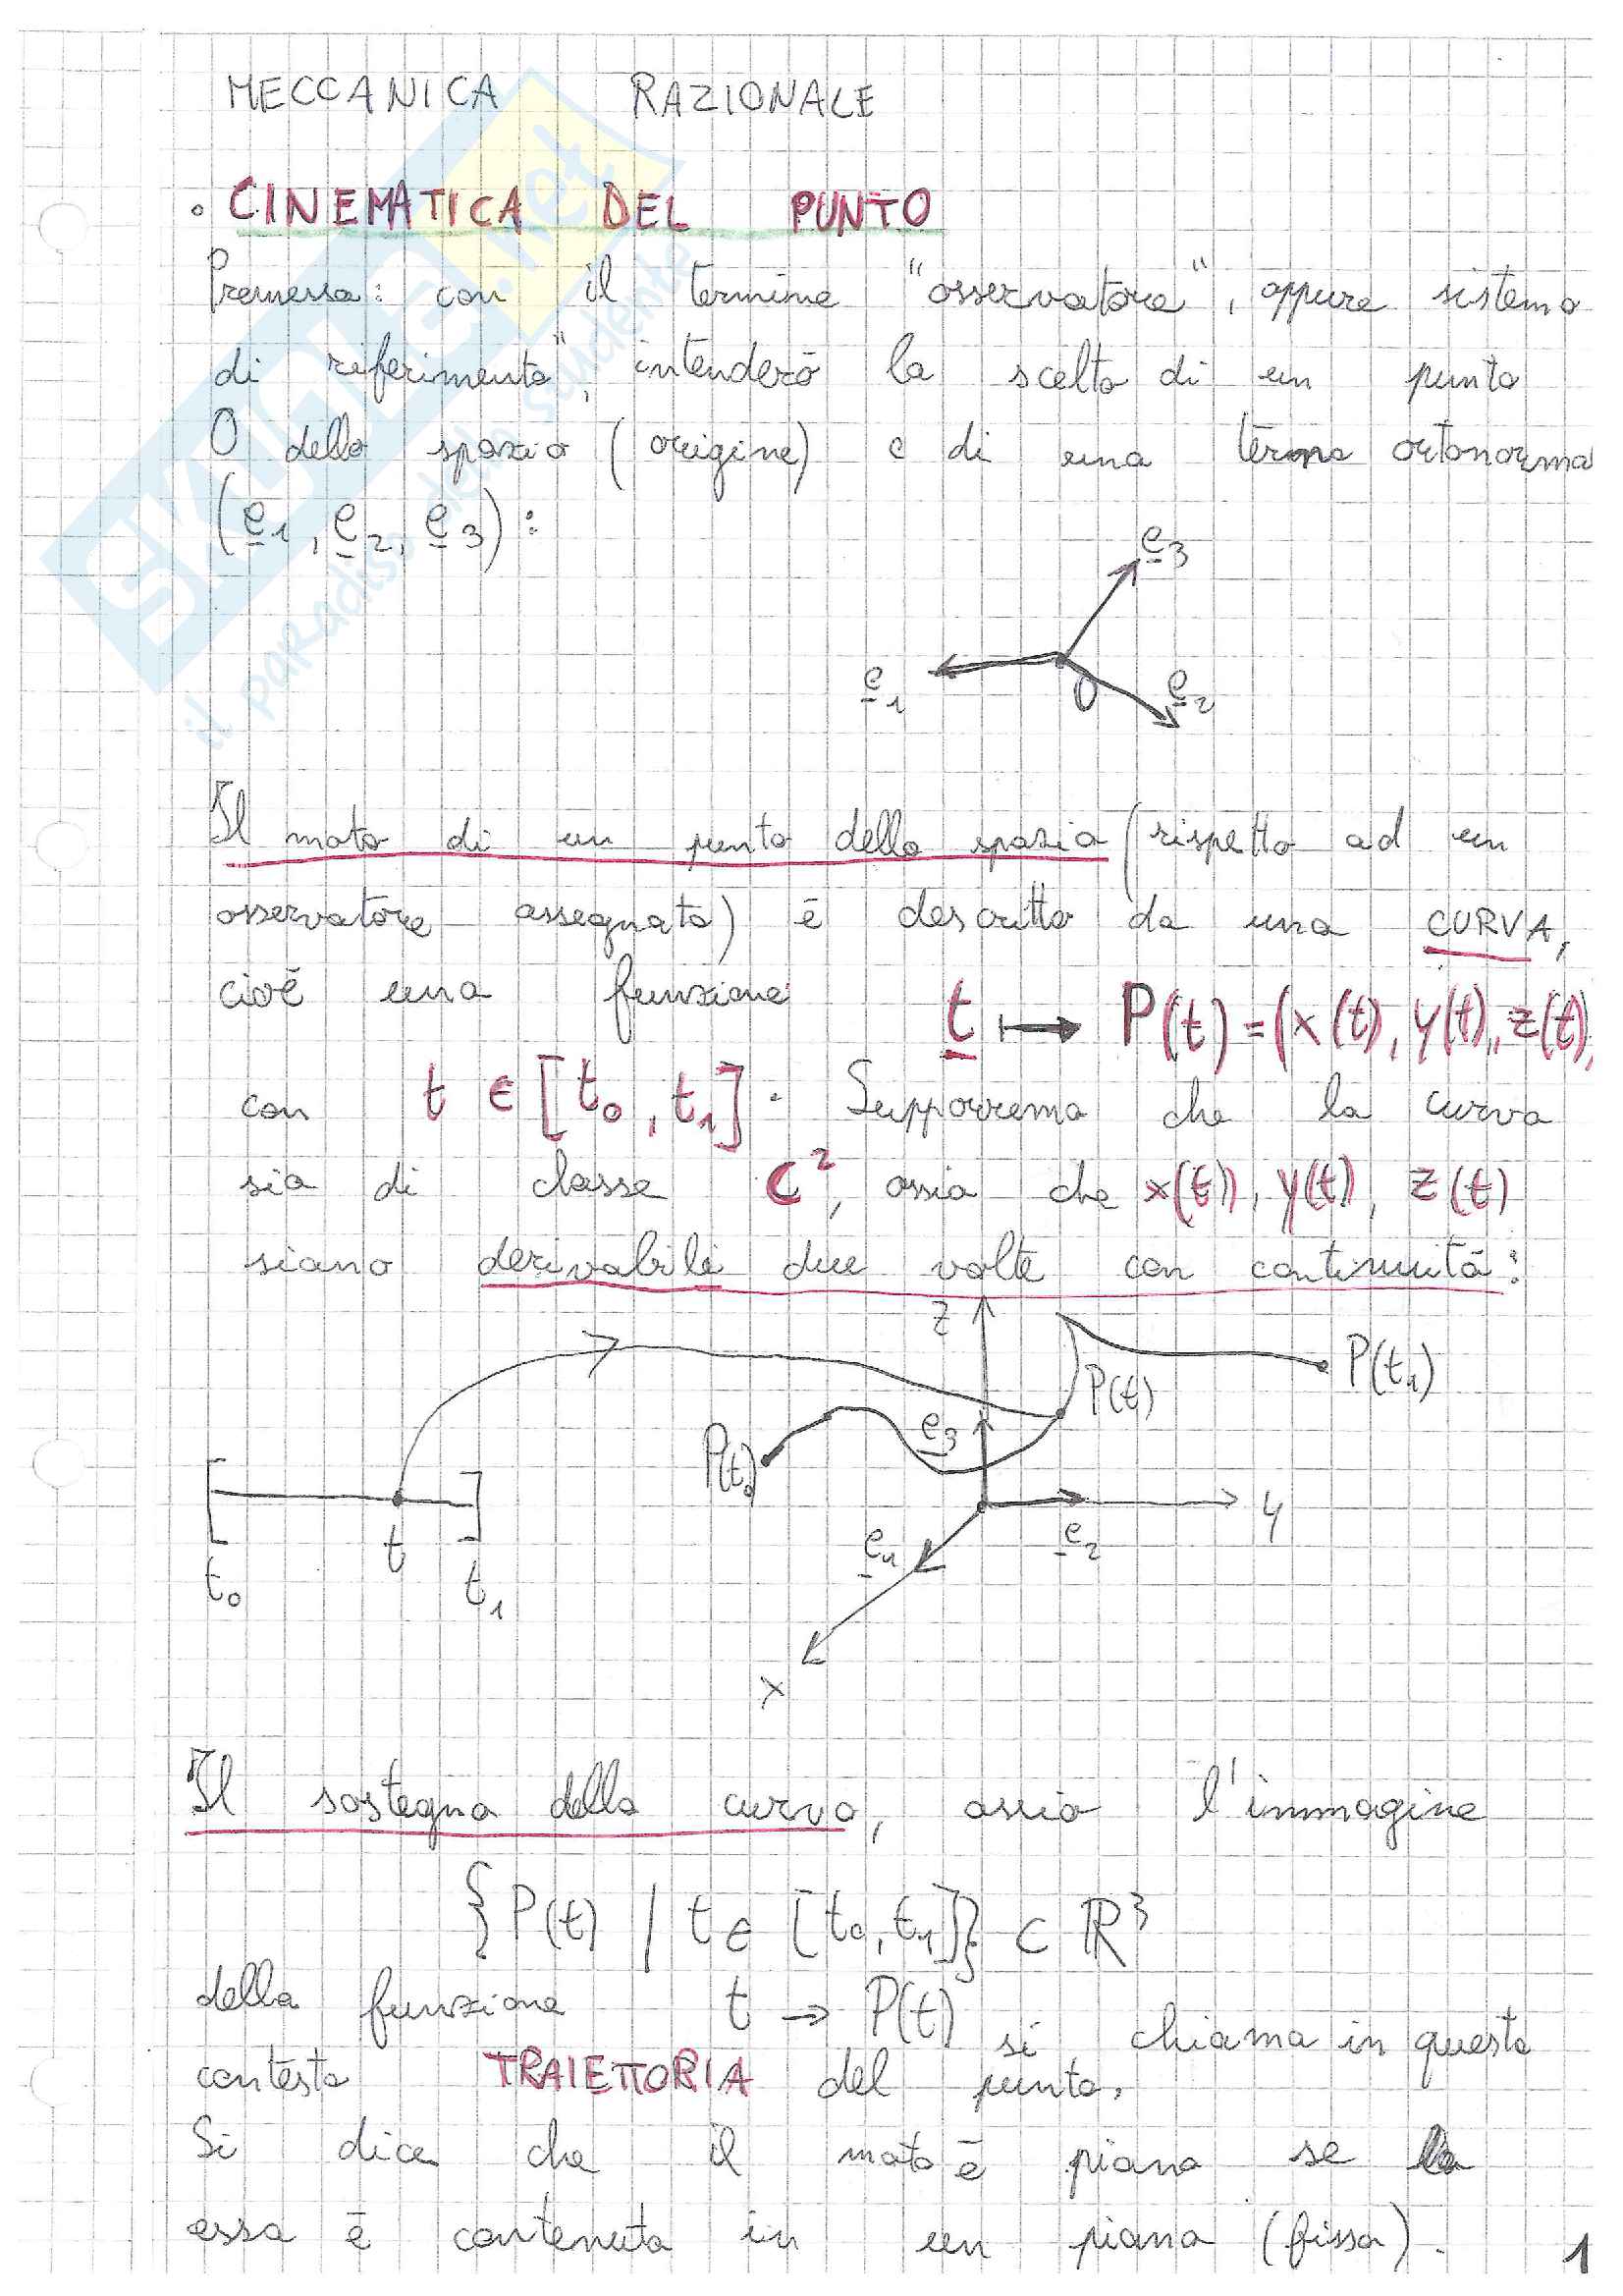 MECCANICA RAZIONALE
• CINEMATICA DEL PUNTO
Premessa: con il termine "osservatore", oppure sistema
di riferimento", intenderò la scelta di un punto
O dello spazio (origine) e di una terna ortonorma
(e1, e2, e3):
e3
e1
O
e2
Il moto di un punto dello spazio (rispetto ad un
osservatore assegnato) è descritto da una CURVA,
cioè una funzione t ↦ P(t) = (x(t), y(t), z(t)
con t ∈ [t0, t1]. Supporremo che la curva
sia di classe C², ossia che x(t), y(t), z(t)
siano derivabili due volte con continuità:
z
P(t1)
P(t)
e3
P(t0)
y
t
e1
e2
t0
t1
x
Il sostegno della curva, ossia l'immagine
{P(t) / t ∈ [t0, t1]} ⊂ ℝ³
della funzione t → P(t) si chiama in questo
contesto TRAIETTORIA del punto.
Si dice che il moto è piano se
essa è contenuta in un piano (fisso).
1
SKUOLA.net
il paradiso dello studente